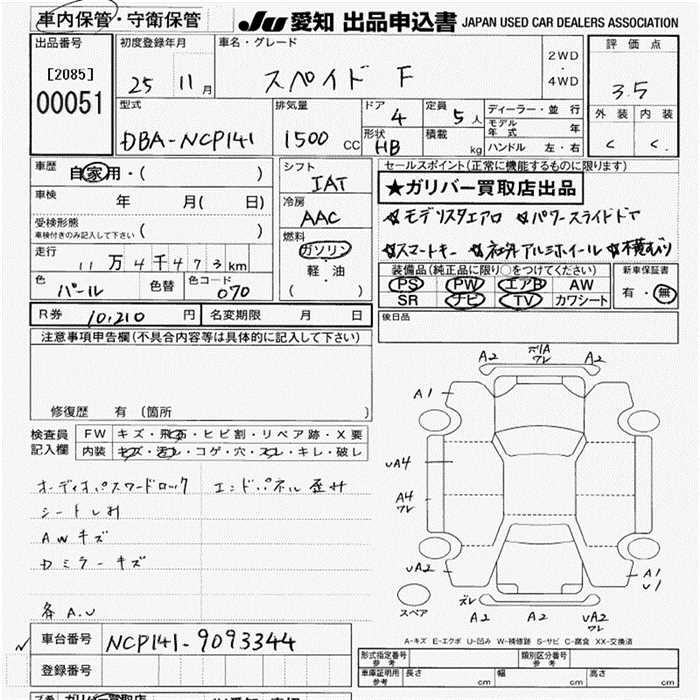 車内保管・守衛保管
JU 愛知 出品申込書 JAPAN USED CAR DEALERS ASSOCIATION
出品番号 初度登録年月 車名・グレード 評価点
[2085]
00051
25 11月 スペイド F 2WD・4WD 3.5
外装 内装
C C
型式 排気量 ドア 定員 ディーラー・並行
DBA-NCP141 1500cc 4 5人 モデル年式 年
形状 HB 積載 kg ハンドル 左・右
車歴 自家用・( )
シフト IAT
セールスポイント(正常に機能するものに限ります)
★ガリバー買取店出品
車検 年 月( 日)
冷房 AAC
☆モデリスタエアロ ☆パワースライドドア
受検形態 ( )
車検付きのみ記入して下さい
燃料 ガソリン
軽・油
( )
☆スマートキー ☆社外アルミホイール ☆木横むり
走行 11万4千473km
装備品(純正品に限り○をつけてください) 新車保証書
PS PW エアB AW 有・無
SR ナビ TV カワシート
色 パール 色替 色コード 070
R券 10,210円 名変期限 月 日
後日品
注意事項申告欄(不具合内容等は具体的に記入して下さい)
修復歴 有(箇所 )
検査員記入欄 FW キズ・飛石・ヒビ割・リペア跡・X要
内装 キズ・汚レ・コゲ・穴・スレ・キレ・破レ
オーディオパスワードロック エンドパネル歪サ
シートしみ
AWキズ
Dミラーキズ
各A.U
A2 ガリA ワレ A2
A1
UA4
A4 ワレ
UA2
A1 U1
スペア
ズレ A2 A2 UA2 ワレ
A-キズ E-エクボ U-凹み W-補修跡 S-サビ C-腐食 XX-交換済
車台番号 NCP141-9093344
登録番号
形式指定番号 参考 類別区分番号 参考
車庫証明用 参考 長さ cm 幅 cm 高さ cm